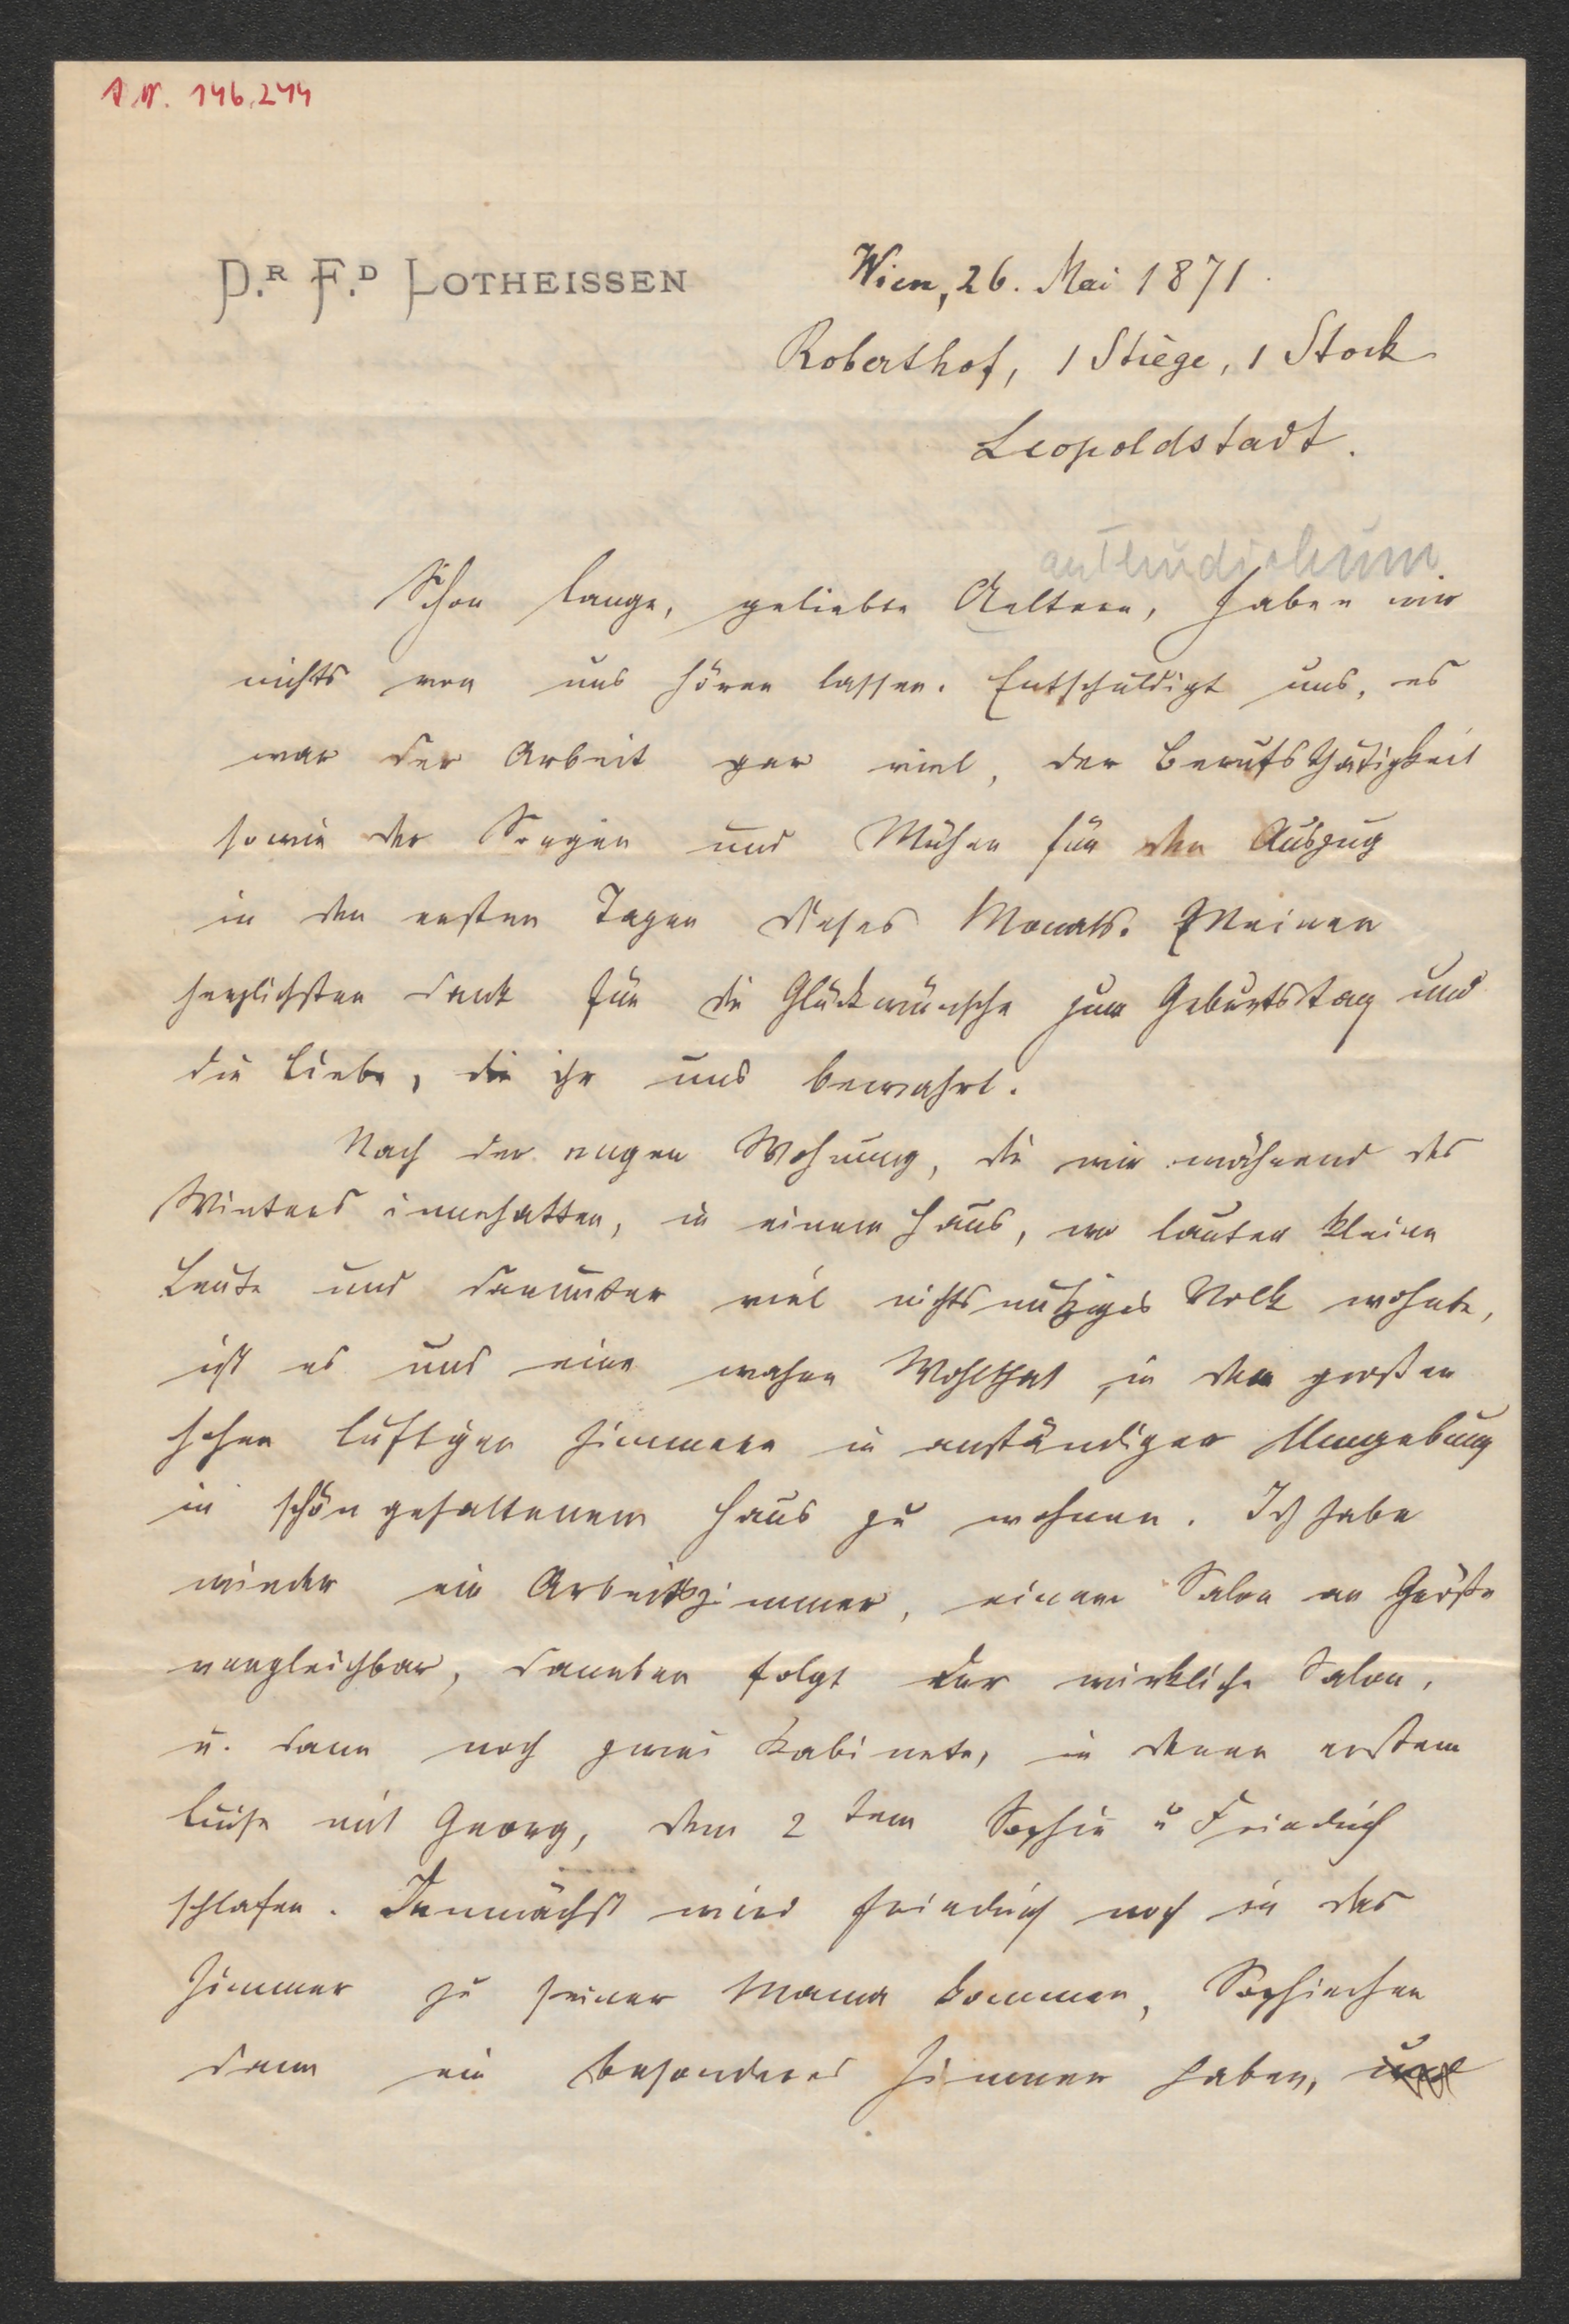 I.N. 146.244
Dr. Fd. LOTHEISSEN
Wien, 26. Mai 1871.
Roberthof, 1 Stiege, 1 Stock
Leopoldstadt.
an Thudichum
Schon lange, geliebte Aeltern, haben wir
nichts von uns hören lassen. Entschuldigt uns, es
war der Arbeit gar viel, der Berufsthätigkeit
sowie der Sorgen und Mühen für den Auszug
in den ersten Tagen dieses Monats. Meinen
herzlichsten Dank für die Glückwünsche zum Geburtstag und
die Liebe, die ihr uns bewahrt.
Nach der engen Wohnung, die wir während des
Winters innehatten, in einem Haus, wo lauter kleine
Leute und darunter viel nichtsnutziges Volk wohnte,
ist es uns eine wahre Wohlthat, in den großen
hohen luftigen Zimmern in anständiger Umgebung
in schön gehaltenem Haus zu wohnen. Ich habe
wieder ein Arbeitszimmer, einem Salon an Größe
vergleichbar, daneben folgt der wirkliche Salon,
u. dann noch zwei Kabinete, in denen erstem
Luise mit Georg, dem 2tem Sophie u Friedrich
schlafen. Demnächst wird Friedrich noch in das
Zimmer zu seiner Mama kommen, Sophiechen
dann ein besonderes Zimmer haben, und